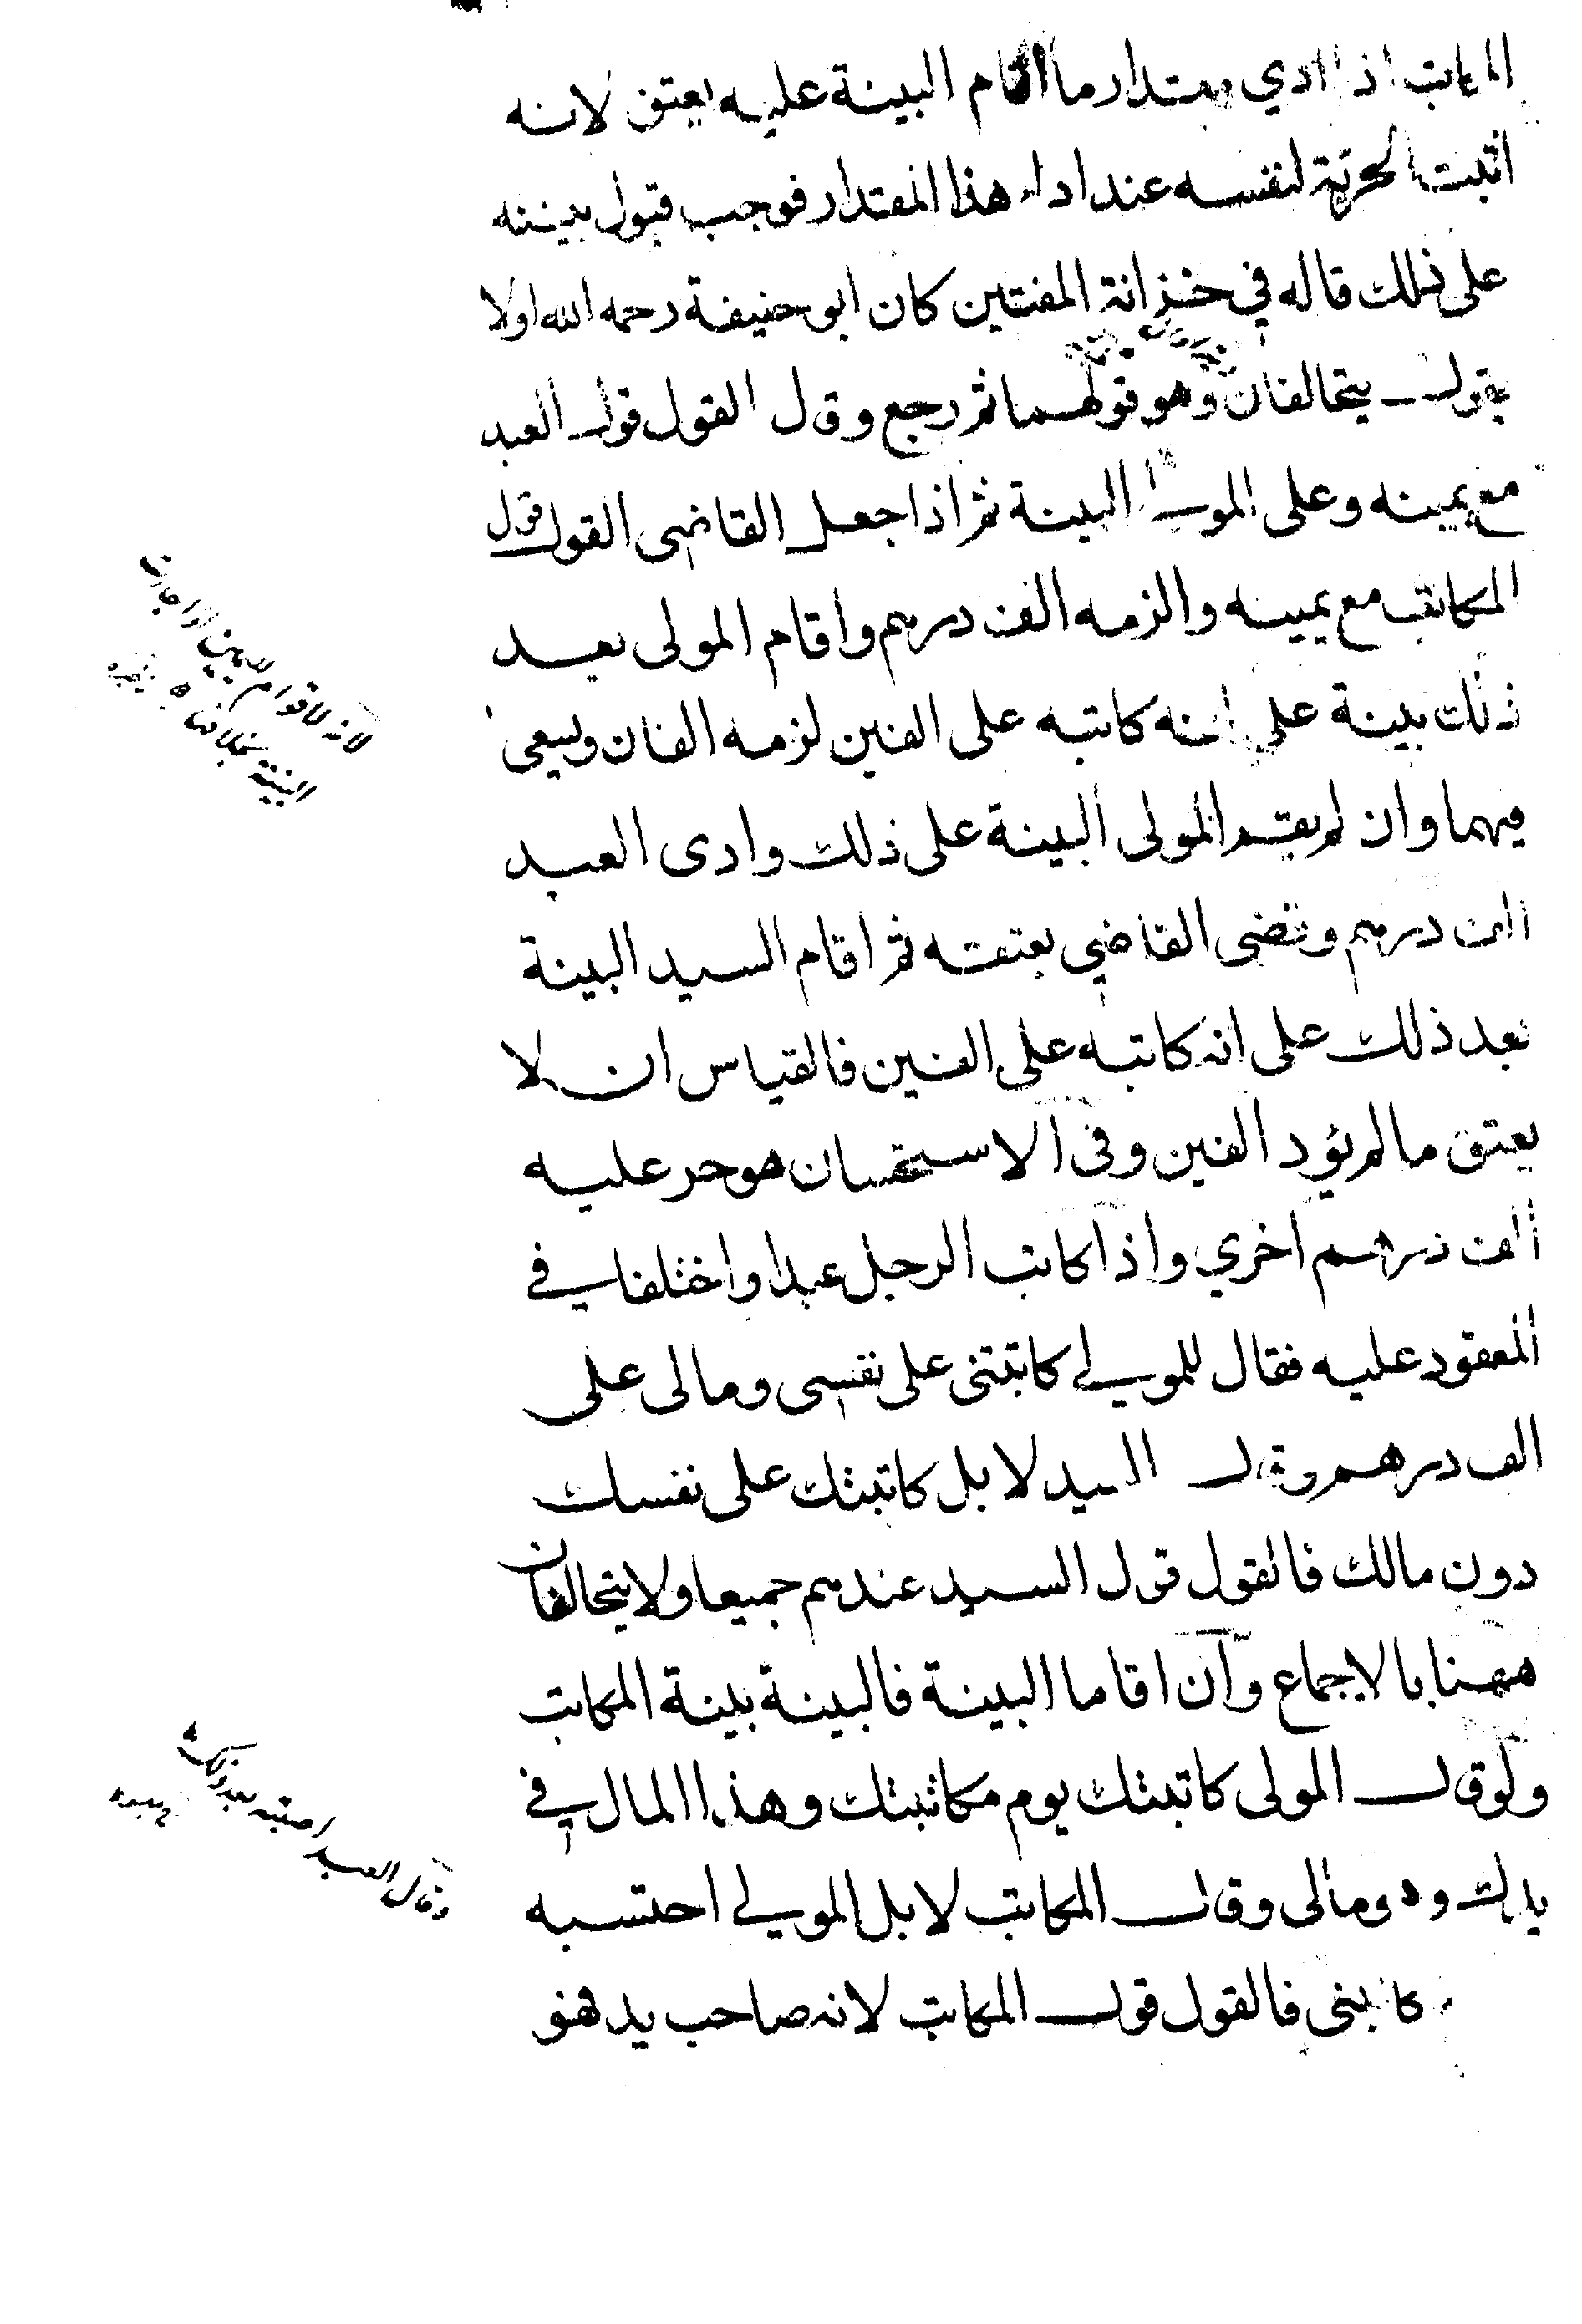 المكاتب اذا ادي مقدار ما اقام البينة عليه يعتق لانه
اثبت الحرية لنفسه عند اداء هذا المقدار فوجب قبول بينته
على ذلك قاله في خزانة المفتين كان ابو حنيفة رحمه الله اولا
يقول يتحالفان وهو قولهما ثم رجع وقال القول قول العبد
مع يمينه وعلى المولى البينة ثم اذا جعل القاضى القول قول
المكاتب مع يمينه والزمه الف درهم واقام المولى بعد
ذلك بينة على انه كاتبه على الفين لزمه الفان ويسعى
فيهما وان لم يقم المولى البينة على ذلك وادى العبد
الف درهم وقضى القاضي بعتقه ثم اقام السيد البينة
بعد ذلك على انه كاتبه على الفين فالقياس ان لا
يعتق ما لم يؤد الفين وفى الاستحسان هو حر عليه
الف درهم اخري واذا كاتب الرجل عبدا واختلفا في
المعقود عليه فقال للمولى كاتبتنى على نفسى ومالى على
الف درهم وقال السيد لا بل كاتبتك على نفسك
دون مالك فالقول قول السيد عندهم جميعا ولا يتحالفان
ههنا بالاجماع وان اقاما البينة فالبينة بينة المكاتب
ولو قال المولى كاتبتك يوم مكاتبتك وهذا المال في
يدك وهو مالى وقال المكاتب لا بل المولى احتسبه
كاتبنى فالقول قول المكاتب لانه صاحب يد فهو
لانه لا قوام لليمين اذا جاءت
البينة بخلافها
وقال العبد اصبته بعد ذلك